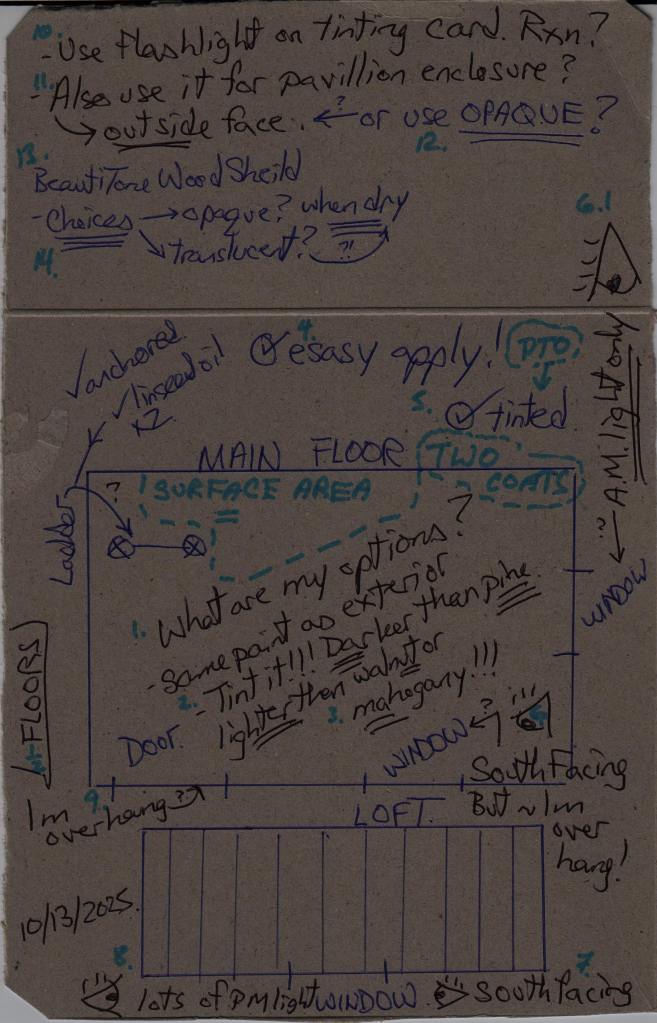 10.
- Use flashlight on tinting card. Rxn?
11.
- Also use it for pavillion enclosure?
↳ outside face. ←?- or use OPAQUE?
12.
13.
BeautiTone Wood Sheild
- Choices → opaque? when dry
↘ translucent? ?!
14.
6.1
A.M. light only
?
WINDOW
✓ anchored
✓ linseed oil
x2
4.
✓ esasy apply!
PTO
5.
✓ tinted
MAIN FLOOR
TWO
COATS
SURFACE AREA
?
Ladder
1. What are my options?
- Same paint as exterior
2. - Tint it!!! Darker than pine
lighter then walnut or
3. mahogany!!!
FLOORS
Door.
WINDOW ←?
South Facing
But ~1m
over
hang!
9.
1m
overhang?→
LOFT.
10/13/2025.
8.
lots of PM light
WINDOW
7.
South facing